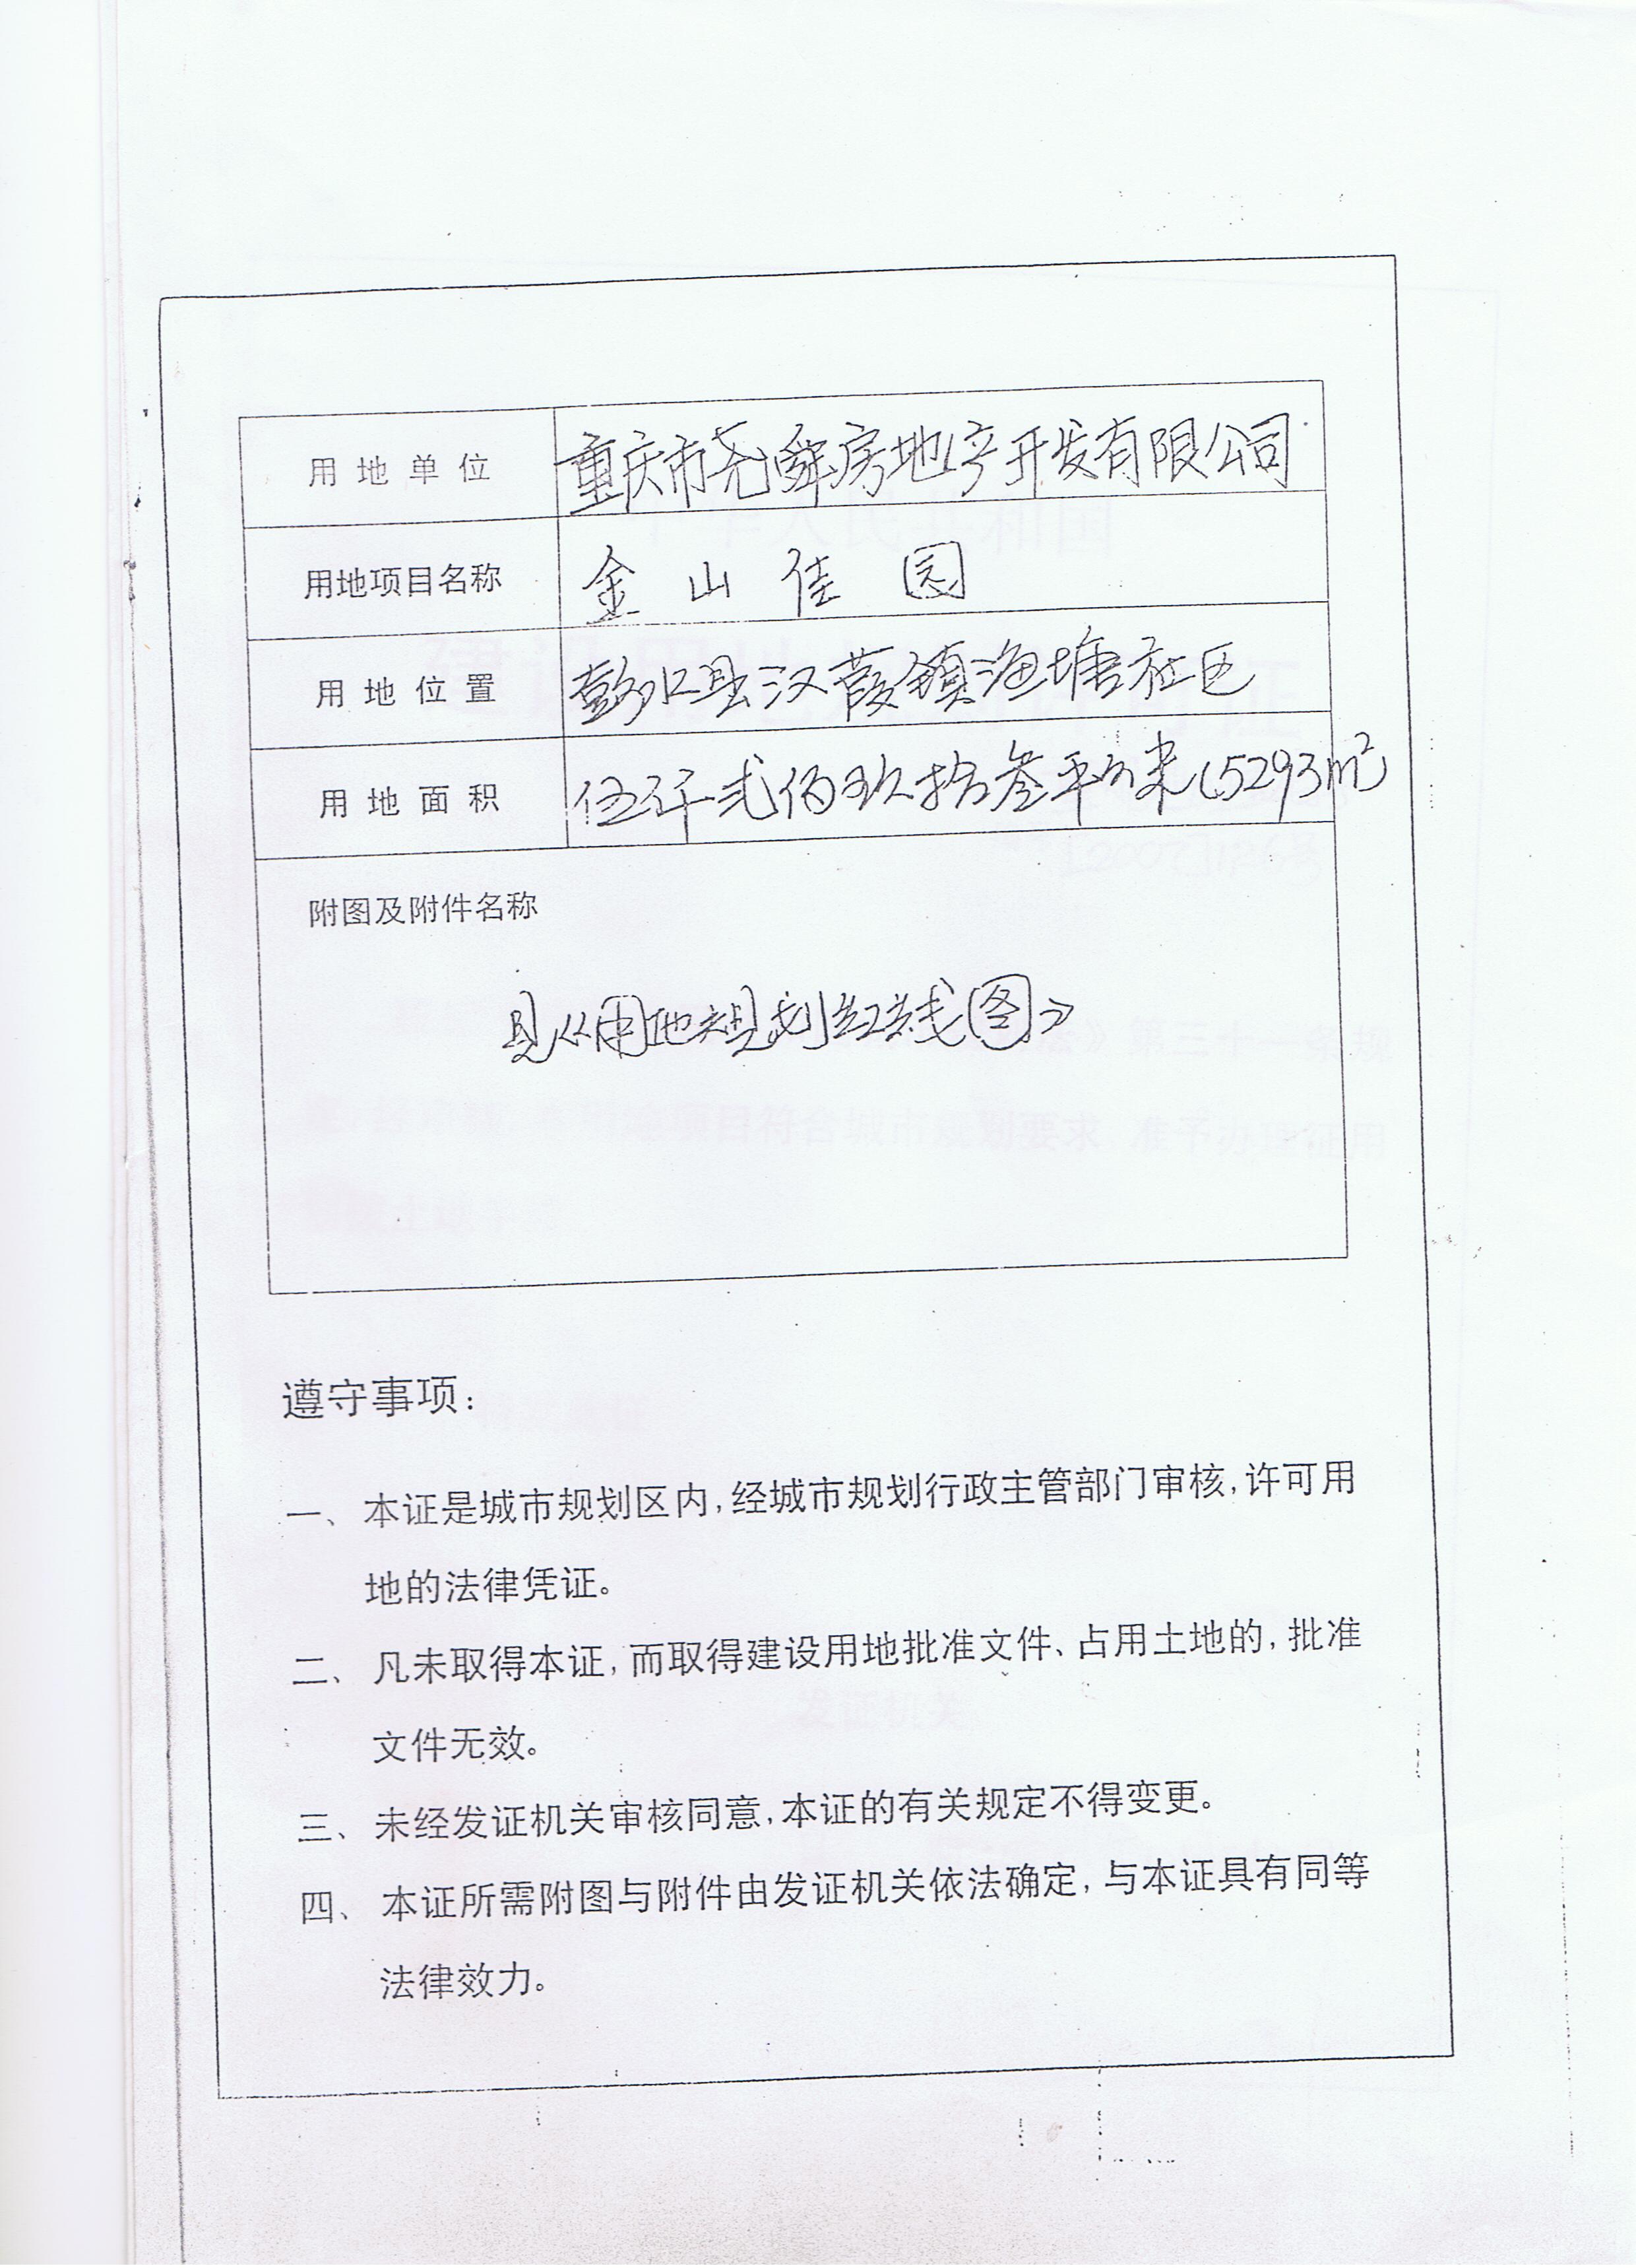 用地单位 重庆市尧舜房地产开发有限公司
用地项目名称 金山佳园
用地位置 彭水县汉葭镇渔塘社区
用地面积 伍仟弍佰玖拾叁平方米(5293m²)
附图及附件名称
见《用地规划红线图》
遵守事项:
一、本证是城市规划区内,经城市规划行政主管部门审核,许可用
地的法律凭证。
二、凡未取得本证,而取得建设用地批准文件、占用土地的,批准
文件无效。
三、未经发证机关审核同意,本证的有关规定不得变更。
四、本证所需附图与附件由发证机关依法确定,与本证具有同等
法律效力。